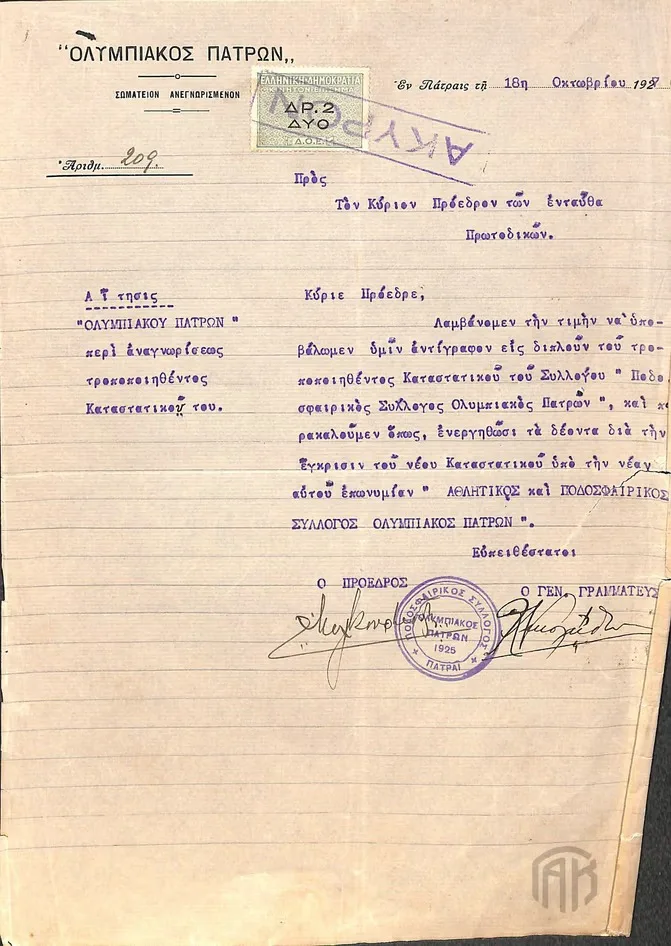 "ΟΛΥΜΠΙΑΚΟΣ ΠΑΤΡΩΝ,,
ΣΩΜΑΤΕΙΟΝ ΑΝΕΓΝΩΡΙΣΜΕΝΟΝ
Ἀριθμ. 209.
ΕΛΛΗΝΙΚΗ ΔΗΜΟΚΡΑΤΙΑ
ΔΡ. 2
ΔΥΟ
ΑΚΥΡΟΝ
Ἐν Πάτραις τῇ 18η Ὀκτωβρίου 192
Πρὸς
Τὸν Κύριον Πρόεδρον τῶν ἐνταῦθα
Πρωτοδικῶν.
Αἴτησις
"ΟΛΥΜΠΙΑΚΟΥ ΠΑΤΡΩΝ"
περὶ ἀναγνωρίσεως
τροποποιηθέντος
Καταστατικοῦ του.
Κύριε Πρόεδρε,
Λαμβάνομεν τὴν τιμὴν νὰ ὑπο-
βάλωμεν ὑμῖν ἀντίγραφον εἰς διπλοῦν τοῦ τρο-
ποποιηθέντος Καταστατικοῦ τοῦ Συλλόγου " Ποδο
σφαιρικὸς Σύλλογος Ὀλυμπιακὸς Πατρῶν ", καὶ π
ρακαλοῦμεν ὅπως, ἐνεργηθῶσι τὰ δέοντα διὰ τὴν
ἔγκρισιν τοῦ νέου Καταστατικοῦ ὑπὸ τὴν νέαν
αὐτοῦ ἐπωνυμίαν " ΑΘΛΗΤΙΚΟΣ καὶ ΠΟΔΟΣΦΑΙΡΙΚΟΣ
ΣΥΛΛΟΓΟΣ ΟΛΥΜΠΙΑΚΟΣ ΠΑΤΡΩΝ ".
Εὐπειθέστατοι
Ο ΠΡΟΕΔΡΟΣ
Ο ΓΕΝ. ΓΡΑΜΜΑΤΕΥΣ
ΠΟΔΟΣΦΑΙΡΙΚΟΣ ΣΥΛΛΟΓΟΣ
ΟΛΥΜΠΙΑΚΟΣ
ΠΑΤΡΩΝ
1925
ΠΑΤΡΑΙ